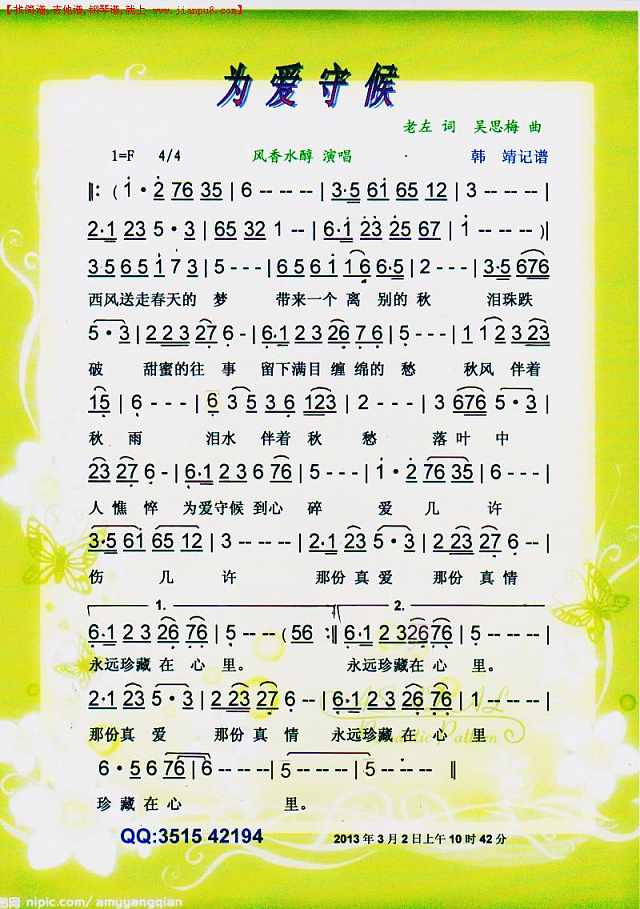 【找简谱,吉他谱,钢琴谱,就上 www.jianpu8.com】
为爱守候
老左 词 吴思梅 曲
1=F 4/4 风香水醇 演唱 韩 靖记谱
‖: ( 1·2 76 35 | 6 -- -- -- | 3·5 61 65 12 | 3 -- -- -- |
2·1 23 5·3 | 65 32 1 -- | 6·1 23 25 67 | 1 -- -- -- )|
3 5 6 5 1 7 3 | 5 - - - | 6 5 6 1 1 6 6·5 | 2 - - - | 3·5 676
西风送走春天的 梦 带来一个 离 别的 秋 泪珠跌
5·3 | 2 2 3 27 6 - | 6·1 2 3 26 7 6 | 5 - - - | 1 1 2 3 23
破 甜蜜的往 事 留下满目 缠 绵的 愁 秋风 伴着
15 | 6 - - - | 6 3 5 3 6 123 | 2 - - - | 3 676 5·3 |
秋 雨 泪水 伴着 秋 愁 落 叶 中
23 27 6 - | 6·1 2 3 6 76 | 5 - - - | 1·2 76 35 | 6 - - - |
人 憔 悴 为爱守候 到心 碎 爱 几 许
3·5 61 65 12 | 3 -- -- -- | 2·1 23 5·3 | 2 23 27 6 -- |
伤 几 许 那份 真 爱 那份 真 情
1. 2.
6·1 2 3 26 76 | 5 -- -- (56 :‖ 6·1 2 326 76 | 5 -- -- -- |
永远珍藏 在 心 里。 永远珍藏 在 心 里。
2·1 23 5·3 | 2 23 27 6 -- | 6·1 2 3 26 76 | 5 -- -- -- |
那份真 爱 那份 真 情 永远珍藏 在 心 里
6·5 6 76 | 6 -- -- --| 5 -- -- -- | 5 -- -- -- ‖
珍 藏 在 心 里。
QQ:3515 42194 2013 年 3 月 2 日上午 10 时 42 分
nipic.com/amyyangqian